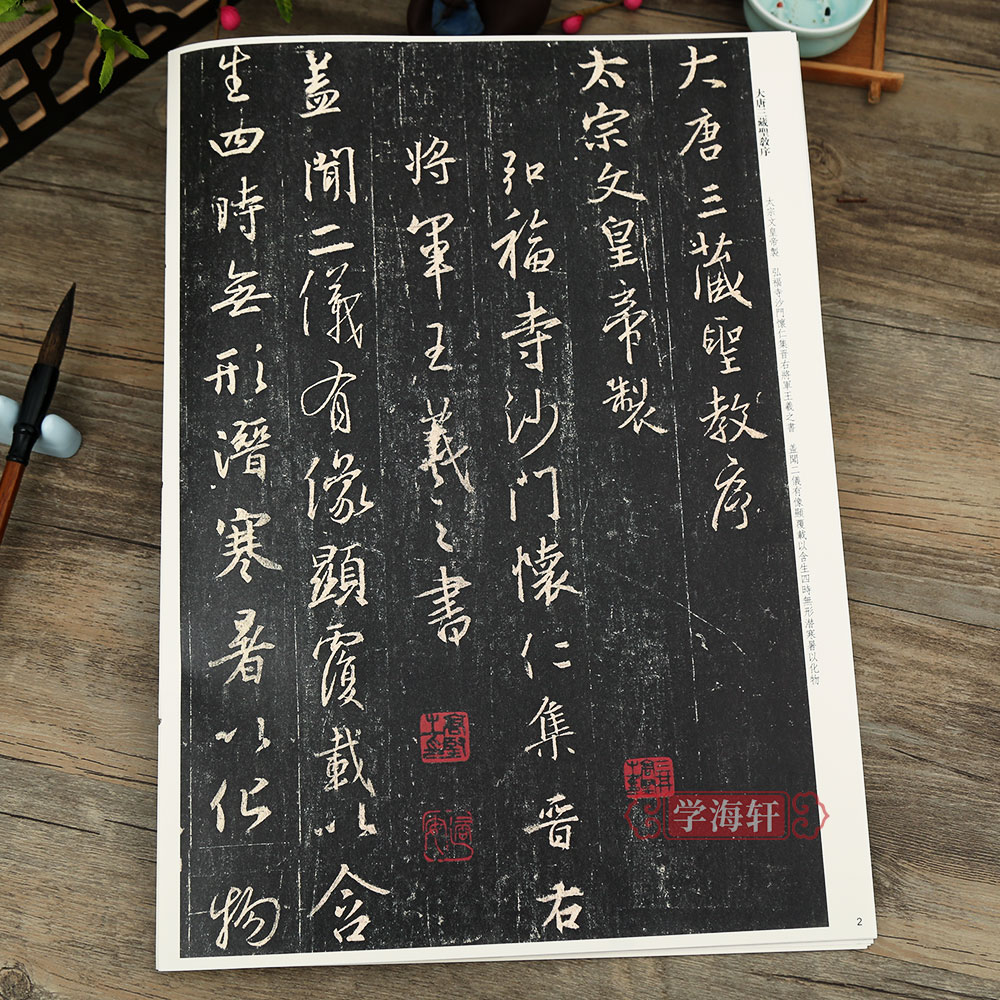 大唐三藏聖教序
太宗文皇帝製
弘福寺沙門懷仁集晋右
將軍王羲之書
盖聞二儀有像顯覆載以含
生四時無形潛寒暑以化物
大唐三藏聖教序
太宗文皇帝製 弘福寺沙門懷仁集晉右將軍王羲之書 盖聞二儀有像顯覆載以含生四時無形潜寒暑以化物
学海轩
2